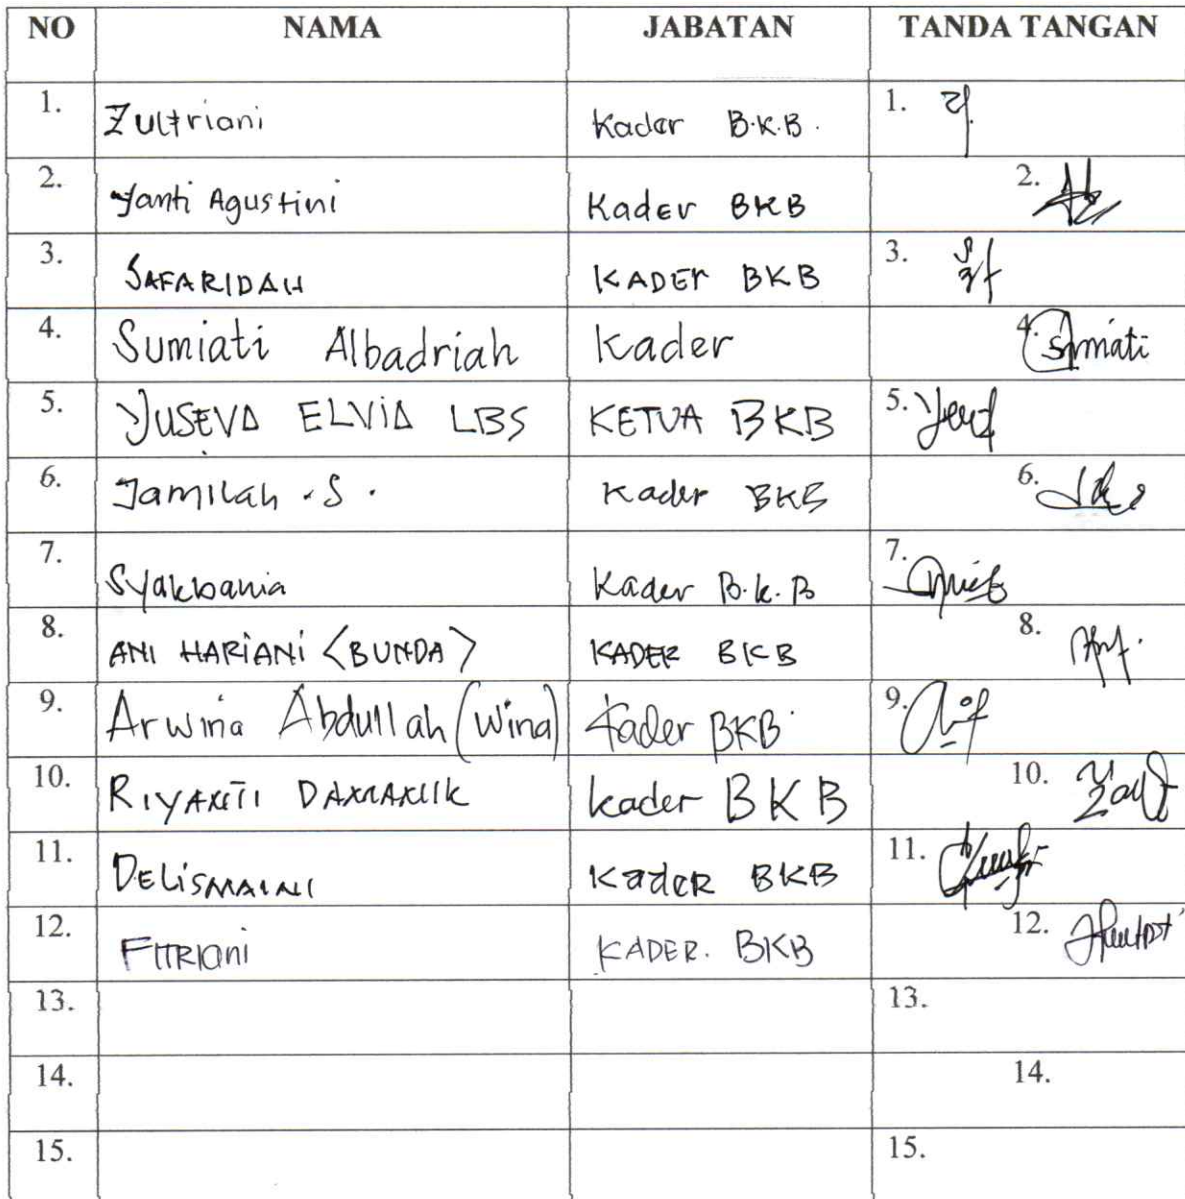 NO NAMA JABATAN TANDA TANGAN
1. Zultriani Kader B.K.B. 1.
2. Yanti Agustini Kader BKB 2.
3. SAFARIDAH KADER BKB 3.
4. Sumiati Albadriah Kader 4. Sumiati
5. YUSEVA ELVIA LBS KETUA BKB 5.
6. Jamilah .S. Kader BKB 6.
7. Syakbania Kader B.k.B 7.
8. ANI HARIANI <BUNDA> KADER BKB 8.
9. Arwina Abdullah (Wina) Kader BKB 9.
10. RIYANTI DAMANIK kader BKB 10.
11. DELISMAINI KadeR BKB 11.
12. FITRIani KADER. BKB 12.
13. 13.
14. 14.
15. 15.